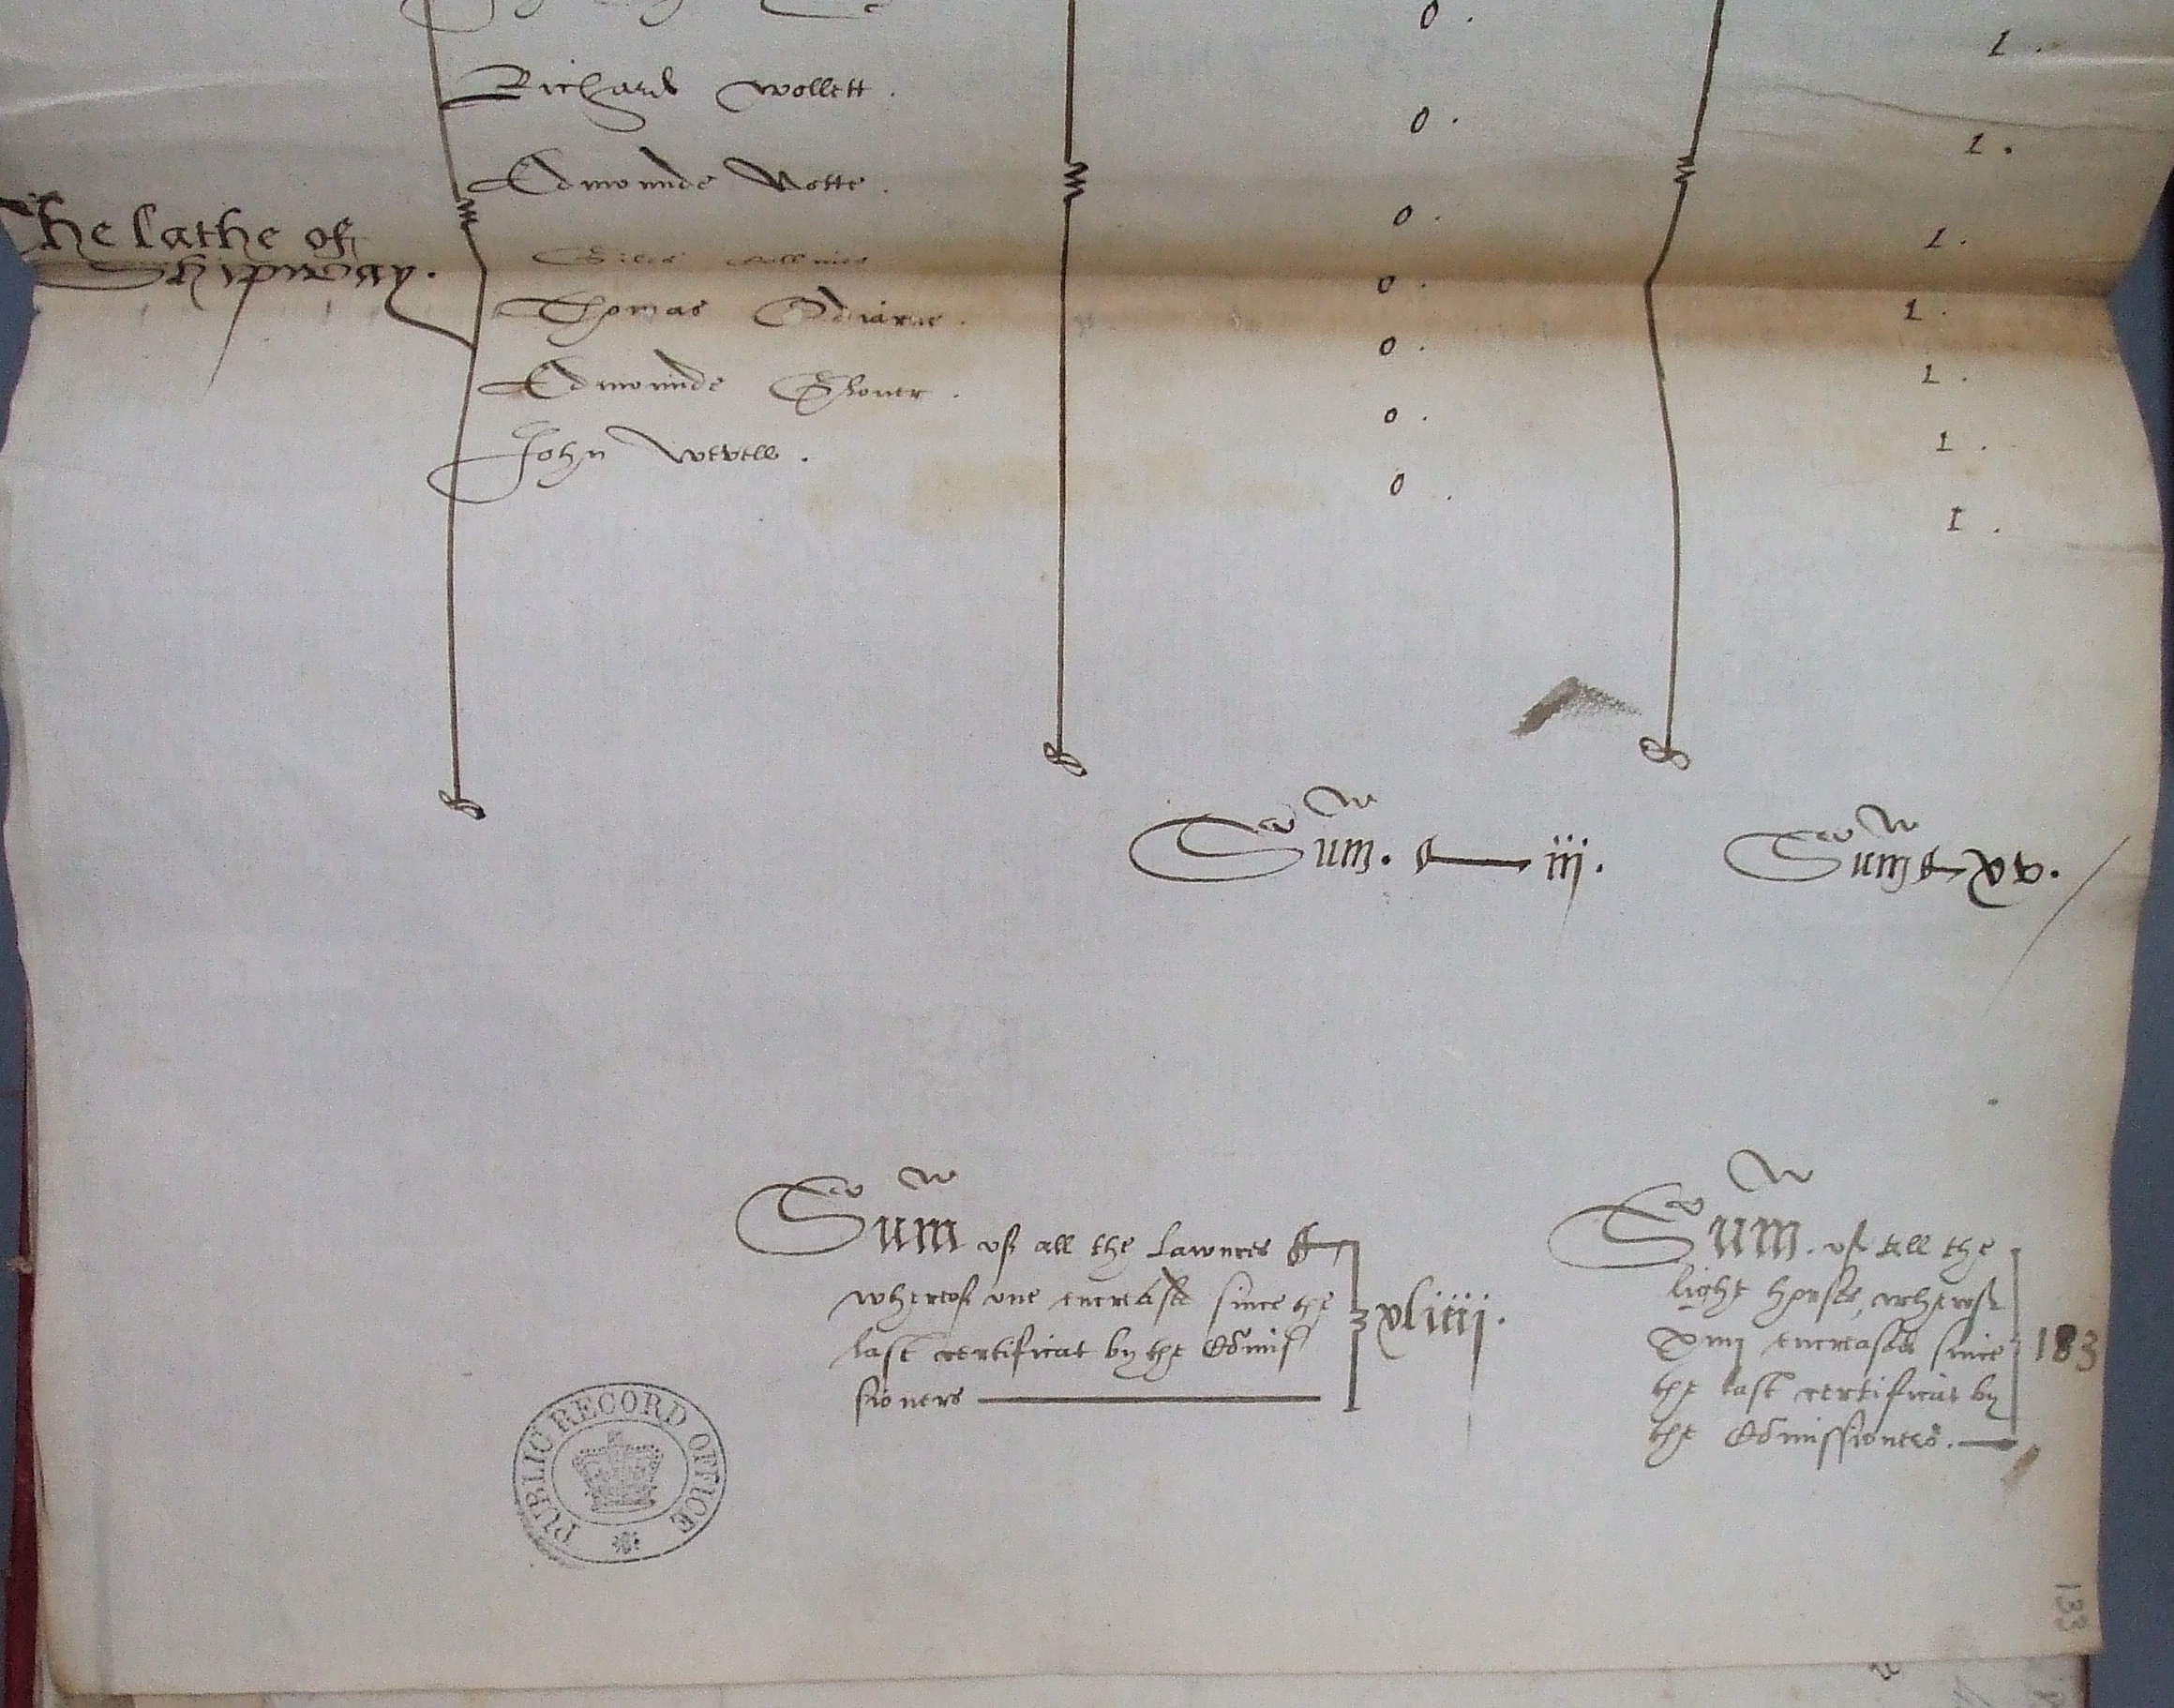 0 . 1 .
Richard Wollett . 0 . 1 .
Edmounde Notte . 0 . 1 .
The lathe of
Shipway .
Giles 0 . 1 .
Thomas Odiarne . 0 . 1 .
Edmounde 0 . 1 .
John Wevell . 0 . 1 .
Sum̃ . iij . Sum̃ xv .
Sum̃ of all the Launces
whereof one encreased since the
last certificat by the Com̃is
sioners
xliiij .
Sum̃ . of all the
light horses, wherof
encreased since
the last certificat by
the Com̃issioners .
183
PUBLIC RECORD OFFICE
133